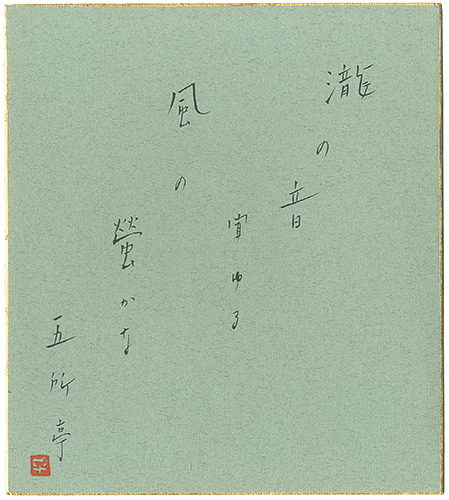 瀧の音
聞ゆる
風の
螢かな
五所亭